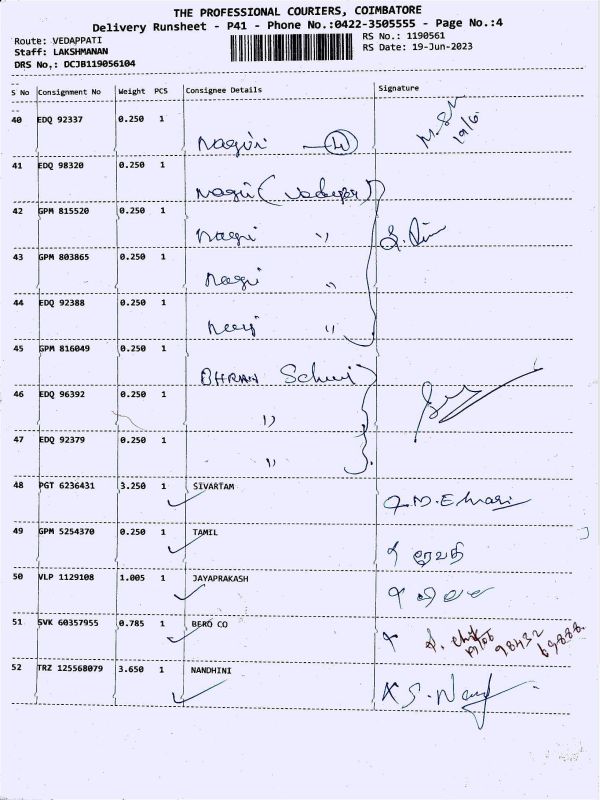 THE PROFESSIONAL COURIERS, COIMBATORE
Delivery Runsheet - P41 - Phone No.:0422-3505555 - Page No.:4
Route: VEDAPPATI
RS No.: 1190561
Staff: LAKSHMANAN
RS Date: 19-Jun-2023
DRS No,: DCJB119056104
S No Consignment No Weight PCS Consignee Details Signature
40 EDQ 92337 0.250 1
19/6
41 EDQ 98320 0.250 1
42 GPM 815520 0.250 1
43 GPM 803865 0.250 1
44 EDQ 92388 0.250 1
45 GPM 816049 0.250 1
46 EDQ 96392 0.250 1
47 EDQ 92379 0.250 1
48 PGT 6236431 3.250 1 SIVARTAM
49 GPM 5254370 0.250 1 TAMIL
ரேவதி
50 VLP 1129108 1.005 1 JAYAPRAKASH
51 SVK 60357955 0.785 1 BERO CO
98432
69888
52 TRZ 125568079 3.650 1 NANDHINI